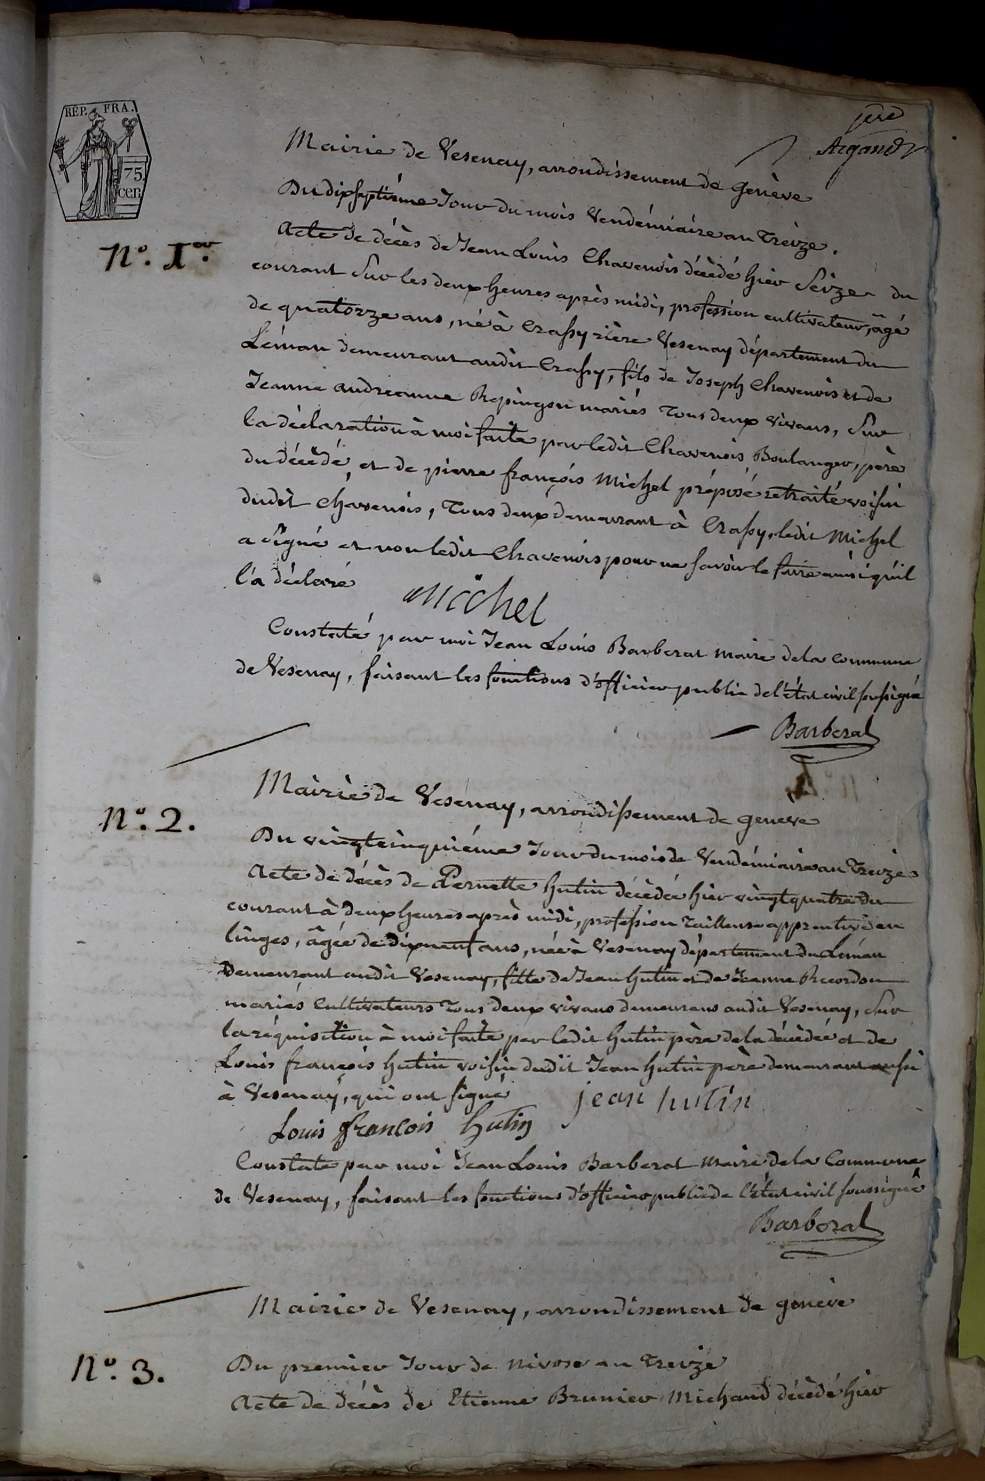 REP. FRA.
75
cen
Argand
Mairie de Vesenay, arrondissement de genève
Du dixseptiéme Jour du mois Vendémiaire an Treize.
N.º 1.er
Acte de décès de Jean Louis Chavenois décèdé hièr Seize du
courant Sur les deux heures après midi, profession cultivateur, âgé
de quatorze ans, né à Crassy rière Vesenay département du
Léman demeurant audit Crassy, fils de Joseph Chavenois et de
Jeanne andreanne mariés Tous deux vivans, Sur
la déclaration à moi faite par ledit Chavenois Boulanger, père
du décèdé, et de pierre françois Michel préposé retraité voisin
dudit Chavenois, Tous deux demeurant à Crassy, ledit Michel
a signé et non ledit Chavenois pour ne savoir le faire ainsi quil
l'a déclaré
Michel
Constaté par moi Jean Louis Barberat maire de la commune
de Vesenay, faisant les fonctions d'officier public de l'état civil soussigné
Barberat
Mairie de Vesenay, arrondissement de geneve
N.º 2.
Du vingtcinquième Jour du mois de Vendémiaire an Treize
Acte de décès de Pernette hutin décèdée hièr vingtquatre du
courant à deux heures après midi, profession Tailleuse apprentive en
linges, âgée de dixneuf ans, née à Vesenay département du Léman
Demeurant audit Vesenay, fille de Jean hutin et de Jeanne Recordon
mariés Cultivateurs Tous deux vivans demeurans audit Vesenay, Sur
la réquisition à moi faite par ledit hutin père de la décèdée et de
Louis françois hutin voisin dudit Jean hutin père demeurant aussi
à Vesenay, qui ont signé
jean hutin
Louis françois hutin
Constaté par moi Jean Louis Barberat maire de la Commune
de Vesenay, faisant les fonctions d'officier public de l'état civil soussigné
Barberat
Mairie de Vesenay, arrondissement de genève
N.º 3.
Du premier Jour de nivose an Treize
Acte de décès de Etienne Brunier Michaud décèdé hièr